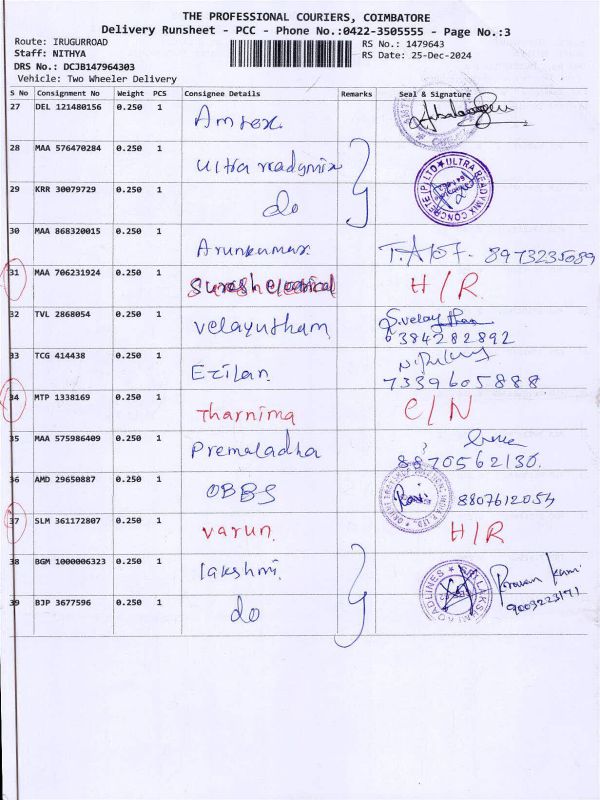 THE PROFESSIONAL COURIERS, COIMBATORE
Delivery Runsheet - PCC - Phone No.:0422-3505555 - Page No.:3
Route: IRUGURROAD
RS No.: 1479643
Staff: NITHYA
RS Date: 25-Dec-2024
DRS No.: DCJB147964303
Vehicle: Two Wheeler Delivery
S No Consignment No Weight PCS Consignee Details Remarks Seal & Signature
27 DEL 121480156 0.250 1 Amrex
28 MAA 576470284 0.250 1 Ultra readymix
ULTRA READYMIX CONCRETE (P) LTD
29 KRR 30079729 0.250 1 do
30 MAA 868320015 0.250 1 Arunkumar 8973235089
31 MAA 706231924 0.250 1 Suresh electrical H/R
32 TVL 2868054 0.250 1 velayutham S.velayutham
6384282892
33 TCG 414438 0.250 1 Ezilan
7339605888
34 MTP 1338169 0.250 1 Tharnima C/N
35 MAA 575986409 0.250 1 Premaladha
8870562130.
36 AMD 29650887 0.250 1 OBBS Ravi. 8807612054
37 SLM 361172807 0.250 1 varun. H/R
38 BGM 1000006323 0.250 1 lakshmi.
SRI LAKSHMI ROADLINES
39 BJP 3677596 0.250 1 do